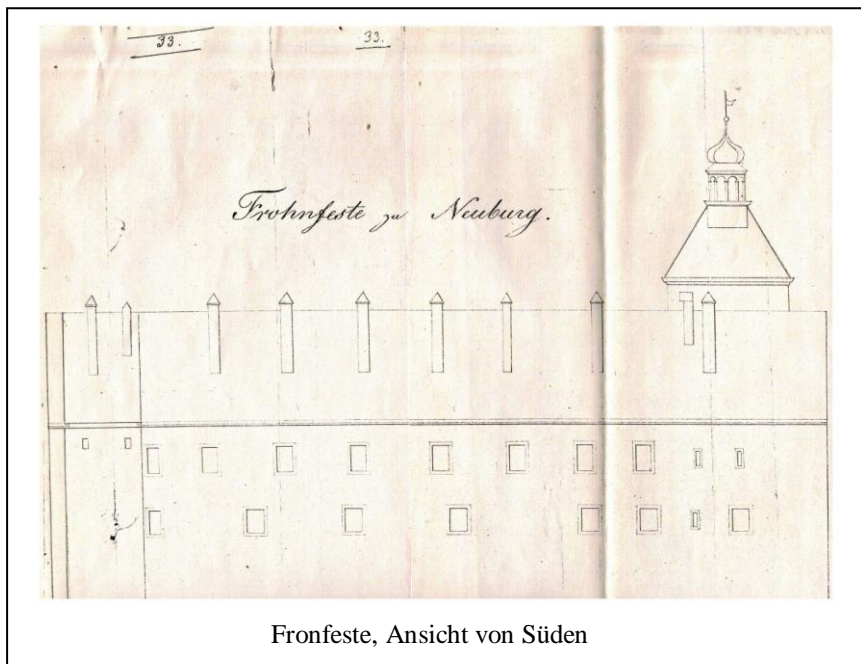 33.
33.
Frohnfeste zu Neuburg.
Fronfeste, Ansicht von Süden